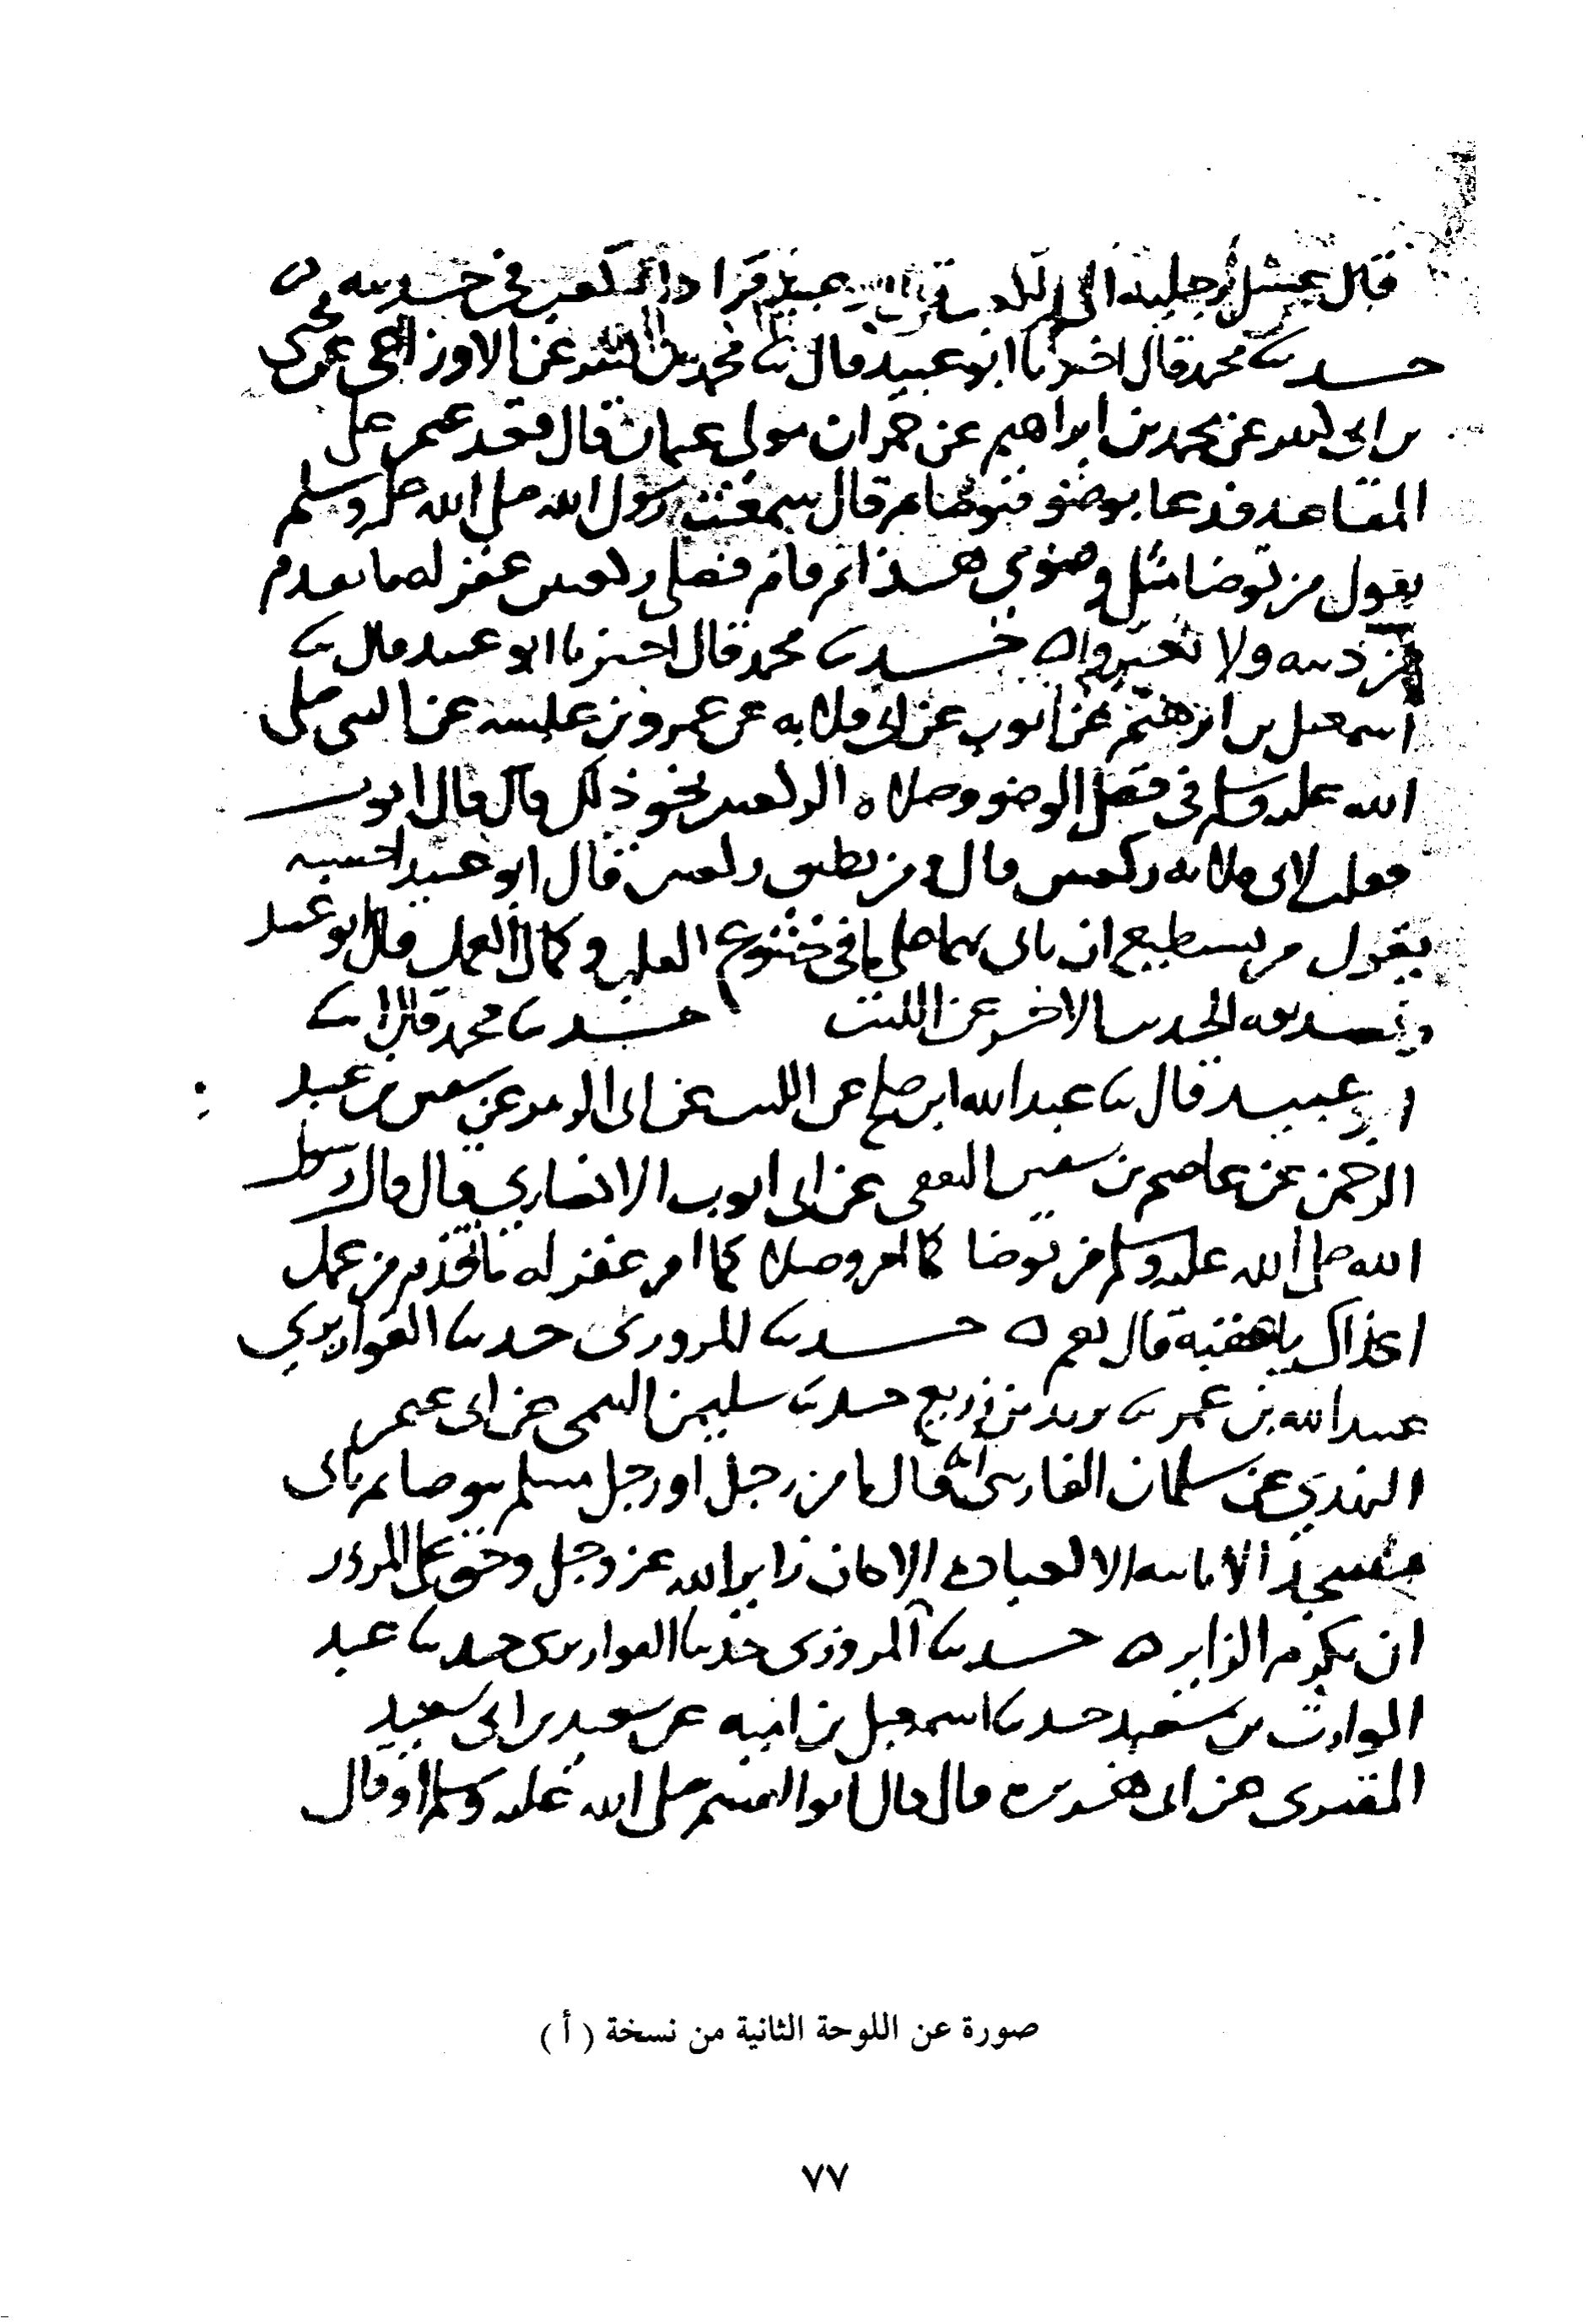 قال غسل رجليه الى الكعبين قال ابو عبيد قراد الكعبين في حديثه
حدثنا محمد قال اخبرنا ابو عبيد قال ثنا محمد بن كثير عن الاوزاعي عن يحيى
بن ابي كثير عن محمد بن ابراهيم عن حمران مولى عثمان قال قعد عثمن على
المقاعد فدعا بوضو فتوضا ثم قال سمعت رسول الله صلى الله عليه وسلم
يقول من توضا مثل وضوي هذا ثم قام فصلى ركعتين غفر له ما تقدم
من ذنبه ولا تغتروا ه حدثنا محمد قال اخبرنا ابو عبيد قال ثنا
اسمعيل بن ابرهيم عن ايوب عن ابي قلابه عن عمرو بن عبسه عن النبي صلى
الله عليه وسلم في فضل الوضو وصلاه الركعتين نحو ذلك قال قال ايوب
فقلت لابي قلابه ركعتين قال ومن يطيق ركعتين قال ابو عبيد احسبه
يقول من يستطيع ان ياتي بهما على ما في خشوع القلب وكمال العمل قال ابو عبيد
وتصديقه الحديث الاخر عن الليث حدثنا محمد قال انا
ابو عبيد قال ثنا عبد الله ابن صلح عن الليث عن ابي الزبير عن سفين بن عبد
الرحمن عن عاصم بن سفين الثقفي عن ابي ايوب الانصاري قال قال رسول
الله صلى الله عليه وسلم من توضا كما امر وصلا كما امر غفر له ما تقدم من عمل
اكذاك يا عقبة قال نعم ه حدثنا المروزي حدثنا القواريري
عبيد الله بن عمر ثنا يزيد بن زريع حدثنا سليمن التيمي عن ابي عثمن
النهدي عن سلمان الفارسي انه قال ما من رجل او رجل مسلم يتوضا ثم ياتي
مسجدا لا ياتيه الا لعبادة الا كان زاير الله عز وجل وحق على المزور
ان يكرم الزاير ه حدثنا المروزي حدثنا القواريري حدثنا عبد
الوارث بن سعيد حدثنا اسمعيل بن اميه عن سعيد بن ابي سعيد
المقبري عن ابي هريرة قال قال ابو القسم صلى الله عليه وسلم او قال
صورة عن اللوحة الثانية من نسخة ( أ )
٧٧